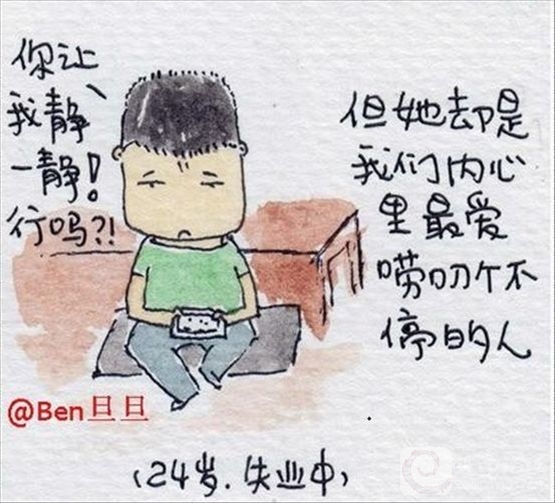 你让
我静、
一静!
行吗?!
但她却是
我们内心
里最爱
唠叨个不
停的人
@Ben旦旦
(24岁.失业中)